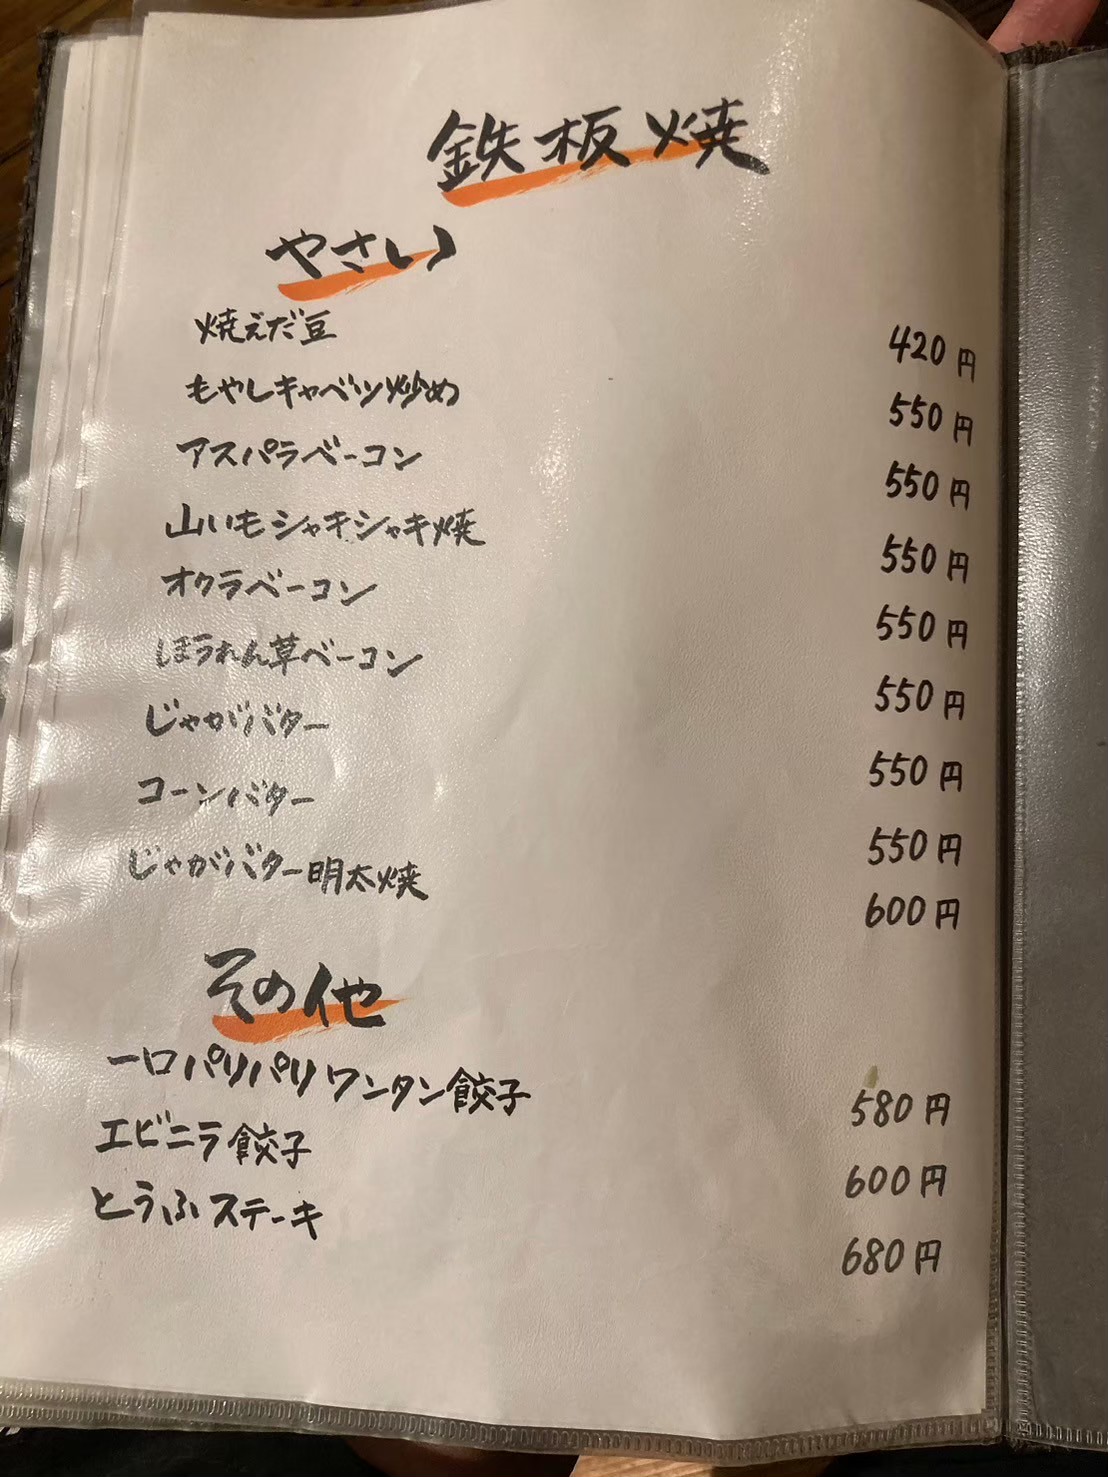 鉄板焼
やさい
焼えだ豆 420円
もやしキャベツ炒め 550円
アスパラベーコン 550円
山いもシャキシャキ焼 550円
オクラベーコン 550円
ほうれん草ベーコン 550円
じゃがバター 550円
コーンバター 550円
じゃがバター明太焼 600円
その他
一口パリパリワンタン餃子 580円
エビニラ餃子 600円
とうふステーキ 680円